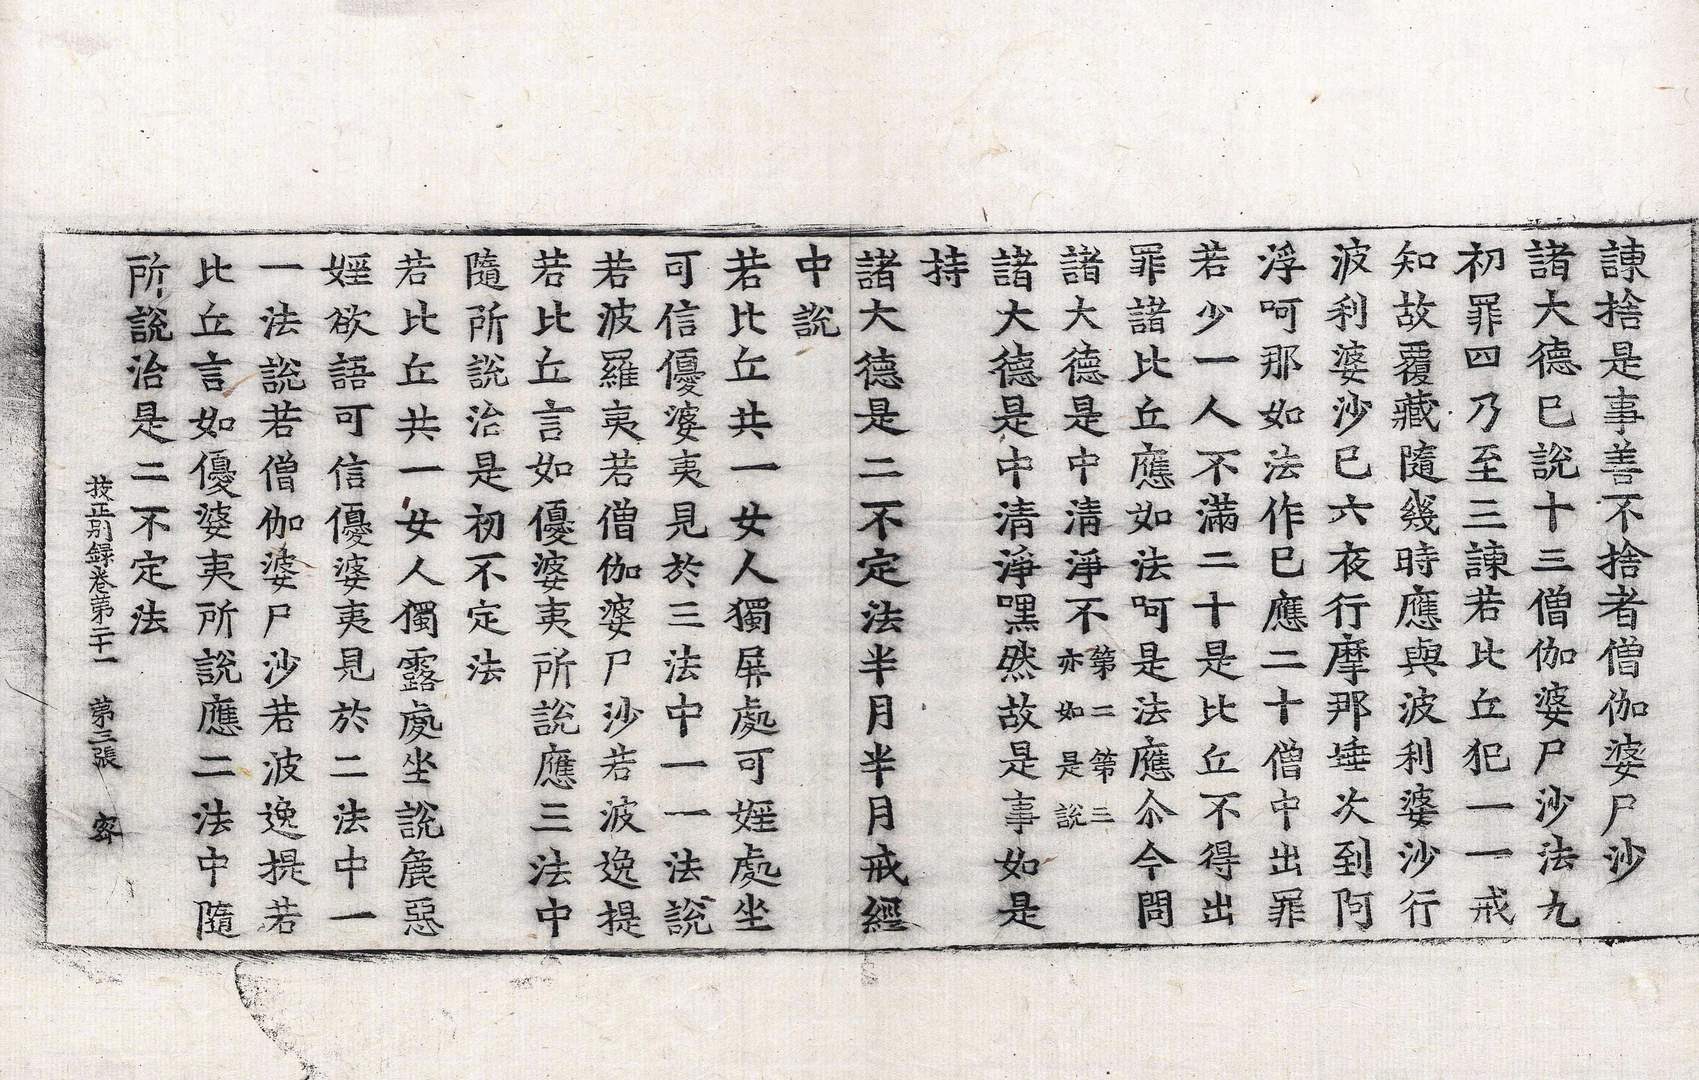 諫捨是事善不捨者僧伽婆尸沙
諸大德已說十三僧伽婆尸沙法九
初罪四乃至三諫若比丘犯一一戒
知故覆藏隨幾時應與波利婆沙行
波利婆沙已六夜行摩那埵次到阿
浮呵那如法作已應二十僧中出罪
若少一人不滿二十是比丘不得出
罪諸比丘應如法呵是法應尒今問
諸大德是中清淨不第二第三亦如是說
諸大德是中清淨嘿然故是事如是
持
諸大德是二不定法半月半月戒經
中說
若比丘共一女人獨屏處可婬處坐
可信優婆夷見於三法中一一法說
若波羅夷若僧伽婆尸沙若波逸提
若比丘言如優婆夷所說應三法中
隨所說治是初不定法
若比丘共一女人獨露處坐說麁惡
婬欲語可信優婆夷見於二法中一
一法說若僧伽婆尸沙若波逸提若
比丘言如優婆夷所說應二法中隨
所說治是二不定法
挍正別録卷第二十一　第三張　密